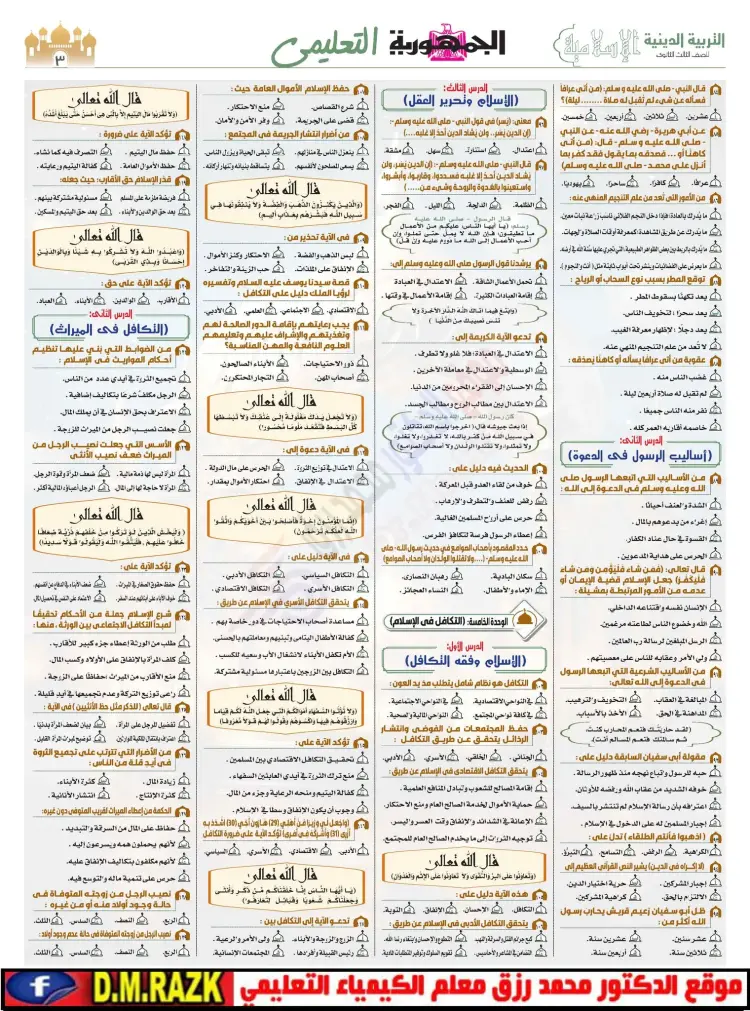 التربية الدينية
الإسلامية
للصف الثالث الثانوى
الجمهورية التعليمى
٣
قال النبي - صلى الله عليه وسلم: (من أتى عرافا
فسأله عن شىء لم تقبل له صلاة ....... ليلة)؟
عشرين. ثلاثين. أربعين. خمسين.
عن أبي هريرة - رضي الله عنه - عن النبي
- صلى الله عليه وسلم - قال: (من أتى
كاهنا أو ... فصدقه بما يقول فقد كفر بما
أنزل على محمد - صلى الله عليه وسلم)
عرافًا. كافرًا. ساحرًا. يهوديا.
من الأمور التى تعد من علم التنجيم المنهى عنه:
توقع المطر بسبب نوع السحاب أو الرياح:
بعد تكهنا بسقوط المطر.
يعد سحرًا لتخويف الناس.
يعد دجلًا لإظهار معرفة الغيب.
لا تعد من علم التنجيم المنهى عنه.
عقوبة من أتى عرافا يسأله أو كاهنا يصدقه:
غضب الناس منه.
لم تقبل له صلاة أربعين ليلة.
نفر منه الناس جميعًا.
خاصمه أقاربه العمر كله.
الدرس الثانى:
(أساليب الرسول فى الدعوة)
من الأساليب التى اتبعها الرسول صلى
الله عليه وسلم فى الدعوة إلى الله:
الشدة والعنف أحيانًا.
إغراء من يدعوهم بالمال.
القسوة فى حال عناد الكفار.
الحرص على هداية المدعوين.
قال تعالى: (فمن شاء فليؤمن ومن شاء
فليكفر) جعل الإسلام قضية الإيمان أو
عدمه من الأمور المرتبطة بمشيئة:
الإنسان نفسه واقتناعه الداخلى.
الله وخضوع الناس لطاعته مرغمين.
الرسل المبلغين لرسالة رب العالمين.
ولى الأمر وعقابه للناس على معصيتهم.
من الأساليب الشرعية التى اتبعها الرسول
فى الدعوة إلى الله تعالى:
المبالغة فى العقاب. التخويف والترهيب.
المداهنة فى الحق. الأخذ بالأسباب.
مقولة أبى سفيان السابقة دليل على:
حبه للرسول واتباع نهجه منذ ظهور الرسالة.
خوفه الشديد من عقاب الله ورفضه للأوثان.
اعترافه بأن رسالة الإسلام لم تنتشر بالسيف.
إجبار المسلمين له على الدخول فى الإسلام.
(اذهبوا فأنتم الطلقاء) تدل على:
الكراهية. الرفض. التسامح. التبرؤ.
(لا إكراه فى الدين) يشير النص القرآنى العظيم إلى
إجبار المشركين. حرية اختيار الدين.
الالتزام بالحق. كراهية المشركين.
ظل أبو سفيان زعيم قريش يحارب رسول
الله أكثر من:
عشر سنين. عشرين سنة.
ثلاثين سنة. أربعين سنة.
الدرس الثالث:
(الإسلام وتحرير العقل)
معنى (يسر) فى قول النبى - صلى الله عليه وسلم -:
(إن الدين يسر، ولن يشاد الدين أحد إلا غلبه).
اعتدال. استنارة. سهل. مشقة.
قال النبى - صلى الله عليه وسلم: (إن الدين يسر، ولن
يشاد الدين أحد إلا غلبه فسددوا، وقاربوا، وأبشروا،
واستعينوا بالغدوة والروحة وشىء من.....)
الظلمة. الدلجة. الليل. الفجر.
قال الرسول - صلى الله عليه
وسلم: (يا أيها الناس، عليكم من الأعمال
ما تطيقون، فإن الله لا يمل حتى تملوا، وإن
أحب الأعمال إلى الله ما دووم عليه وإن قل)
يرشدنا قول الرسول صلى الله وعليه وسلم إلى:
تحمل الأعمال الشاقة. الاعتدال فى العبادة
إقامة العبادات الكثيرة. إقامة الأعمال فى وقتها.
(وابتغ فيما آتاك الله الدار الآخرة ولا
تنس نصيبك من الدنيا)
تدعو الآية الكريمة إلى:
الاعتدال فى العبادة: فلا غلو ولا تطرف.
الوسطية والاعتدال فى معاملة الآخرين.
الإحسان إلى الفقراء المحرومين من الدنيا.
الاعتدال بين مطالب الروح ومطالب الجسد.
كان رسول الله - صلى الله عليه وسلم -
إذا بعث جيوشه قال: (اخرجوا باسم الله، تقاتلون
فى سبيل الله من كفر بالله، لا تغدروا، ولا تغلوا
ولا تمثلوا، ولا تقتلوا الولدان ولا أصحاب الصوامع)
الحديث فيه دليل على:
خوف من لقاء العدو قبل المعركة.
رفض للعنف والتطرف والإرهاب.
حرص على أرواح المسلمين الغالية.
إعطاء الرسول فرصة لتكافؤ الفرس.
حدد المقصود بأصحاب الصوامع فى حديث رسول الله - صلى
الله عليه وسلم - (....ولا تقتلوا الولدان ولا أصحاب الصوامع)
سكان البادية. رهبان النصارى.
الإماء والأطفال. النساء العجائز.
الوحدة الخامسة: (التكافل فى الإسلام)
الدرس الأول:
(الإسلام وفقه التكافل)
التكافل هو نظام شامل يتطلب مد يد العون:
فى النواحى الاقتصادية. فى النواحى الاجتماعية.
فى كافة نواحى المجتمع. النواحى المالية والصحية.
حفظ المجتمعات من الفوضى وانتشار
الرذائل يتحقق عن طريق التكافل:
الجنائى. الخلقى. الأسرى. الأدبى.
يتحقق التكافل الاقتصادى فى الإسلام عن طريق:
إقامة المصالح للشعوب وتبادل المنافع العلمية.
حماية الأموال لخدمة الصالح العام ومنع الاحتكار.
الإعانة فى الشدائد والإنفاق وقت العسر واليسر.
توجيه الثروات إلى ما يخدم الصالح العام للمجتمع.
قال الله تعالى
(وتعاونوا على البر والتقوى ولا تعاونوا على الإثم والعدوان)
هذه الآية دليل على:
التكافل. الإحسان. الإنفاق. التوبة.
يتحقق التكافل الأدبى فى الإسلام عن طريق:
حفظ الإسلام الأموال العامة حيث:
شرع القصاص. منع الاحتكار.
قضى على الجريمة. وفر الأمن والأمان.
من أضرار انتشار الجريمة فى المجتمع:
ينعزل الناس فى منازلهم. تبقى الحياة ويزول الناس.
يسعى المصلحون لأنفسهم. تتساقط بنيانه وتنهار أركانه.
قال الله تعالى
(والذين يكنزون الذهب والفضة ولا ينفقونها فى
سبيل الله فبشرهم بعذاب أليم)
فى الآية تحذير من:
لبس الذهب والفضة. الاحتكار وكنز الأموال.
الإنفاق على الملذات. حب الزينة والتفاخر.
قصة سيدنا يوسف عليه السلام وتفسيره
لرؤيا الملك دليل على التكافل:
الاقتصادى. الاجتماعى. العلمى. الأدبى.
يجب رعايتهم بإقامة الدور الصالحة لهم
وتغذيتهم والإشراف عليهم وتعليمهم
العلوم النافعة والمهن المناسبة؟
ذوو الاحتياجات. الأبناء الصالحون.
أصحاب المهن. التجار المحتكرون.
قال الله تعالى
(ولا تجعل يدك مغلولة إلى عنقك ولا تبسطها
كل البسط فتقعد ملوما محسورا)
فى الآية دعوة إلى:
الاعتدال فى توزيع الثروة. الحرص على مال الدولة.
الاعتدال فى الإنفاق. احتكار الأموال بمقدار.
قال الله تعالى
(إنما المؤمنون إخوة فأصلحوا بين أخويكم واتقوا
الله لعلكم ترحمون)
فى الآية دليل على:
التكافل السياسى. التكافل الأدبى.
التكافل الأسرى. التكافل الاقتصادى.
يتحقق التكافل الأسرى فى الإسلام عن طريق:
مساعدة أصحاب الاحتياجات فى دور خاصة بهم.
كفالة الأطفال اليتامى وتبنيهم ومعاملتهم بالحسنى.
الأم تكفل الأبناء لانشغال الأب وسعيه للكسب.
التكافل بين الزوجين باعتبارها مسئولية مشتركة.
قال الله تعالى
(ولا تؤتوا السفهاء أموالكم التى جعل الله لكم قياما
وارزقوهم فيها واكسوهم وقولوا لهم قولا معروفا)
تؤكد الآية على:
تحقيق التكافل الاقتصادى بين المسلمين.
منع ترك الثروة فى أيدى العابثين السفهاء.
كفالة اليتيم ومنحه الرعاية وجزء من المال.
وجوب أن يكون الإنفاق وسطا فى الإسلام.
(واجعل لى وزيرا من أهلى (29) هارون أخى (30) اشدد به
أزرى (31) وأشركه فى أمرى) تؤكد الآية على ضرورة التكافل
الأدبى. الاقتصادى. الأسرى. السياسى.
قال الله تعالى
(يا أيها الناس إنا خلقناكم من ذكر وأنثى
وجعلناكم شعوبا وقبائل لتعارفوا)
تدعو الآية إلى التكافل بين:
الزوج والزوجة والأبناء. ولى الأمر والرعية.
رئيس القبيلة وأفرادها. المجتمعات الإنسانية.
قال الله تعالى
(ولا تقربوا مال اليتيم إلا بالتى هى أحسن حتى يبلغ أشده)
تؤكد الآية على ضرورة:
حفظ مال اليتيم. التصرف فيه كما نشاء.
حفظ الأموال العامة. كفالة اليتيم ورعايته.
قدر الإسلام حق الأقارب؛ حيث جعله:
فريضة ملزمة على المسلم. مسئولية مشتركة بينهم.
بعد حق الوالدين والأبناء. بعد حق اليتيم والمسكين.
قال الله تعالى
(واعبدوا الله ولا تشركوا به شيئا وبالوالدين
إحسانا وبذى القربى)
تؤكد الآية على حق:
الأقارب. الوالدين. الأبناء. العباد.
الدرس الثانى:
(التكافل فى الميراث)
من الضوابط التى بنى عليها تنظيم
أحكام المواريث فى الإسلام:
تجميع الثروة فى أيدى عدد من الناس.
الرجل مكلف شرعا بتكاليف إضافية.
الاعتراف بحق الإنسان فى أن يملك المال.
جعلت نصيب الرجل من الميراث للزوجة.
الأسس التى جعلت نصيب الرجل من
الميراث ضعف نصيب الأنثى
المرأة ليس لها ذمة مالية. ضعف المرأة وقوة الرجل.
المرأة لا حاجة لها إلى المال. الرجل أعباؤه المالية أكثر.
قال الله تعالى
(وليخش الذين لو تركوا من خلفهم ذرية ضعافا
خافوا عليهم فليتقوا الله وليقولوا قولا سديدا)
شرع الإسلام جملة من الأحكام تحقيقًا
لمبدأ التكافل الاجتماعى بين الورثة، منها:
طلب من الورثة إعطاء جزء كبير للأقارب.
كلف المرأة بالإنفاق على الأولاد وكسب المال.
منع الأقارب من الميراث؛ حفاظا على الزوجة.
راعى توزيع التركة وعدم تجميعها بأيد قليلة.
قال تعالى (للذكر مثل حظ الأنثيين) فى الآية:
تفضيل الرجل على المرأة. بيان لضعف المرأة بدنيًا.
من الأضرار التى تترتب على تجميع الثروة
فى أيد قلة من الناس:
زيادة المال. كثرة الأبناء.
كثرة الإنتاج. انتشار الأنانية.
الحكمة من إعطاء الميراث لقريب المتوفى دون غيره:
حفاظ على المال من السرقة والتبديد.
لأنهم يحملون همه ويسرعون إليه.
لأنهم مكلفون بتكاليف الإنفاق عليه.
حرص على تنمية ماله والتوسع فيه.
نصيب الرجل من زوجته المتوفاة فى
حالة وجود أولاد منه أو من غيره:
الربع. النصف. السدس. الثلث.
نصيب الرجل من زوجته المتوفاة فى حالة عدم وجود أولاد:
الربع. النصف. السدس. الثلث.
موقع الدكتور محمد رزق معلم الكيمياء التعليمي
D.M.RAZK
f